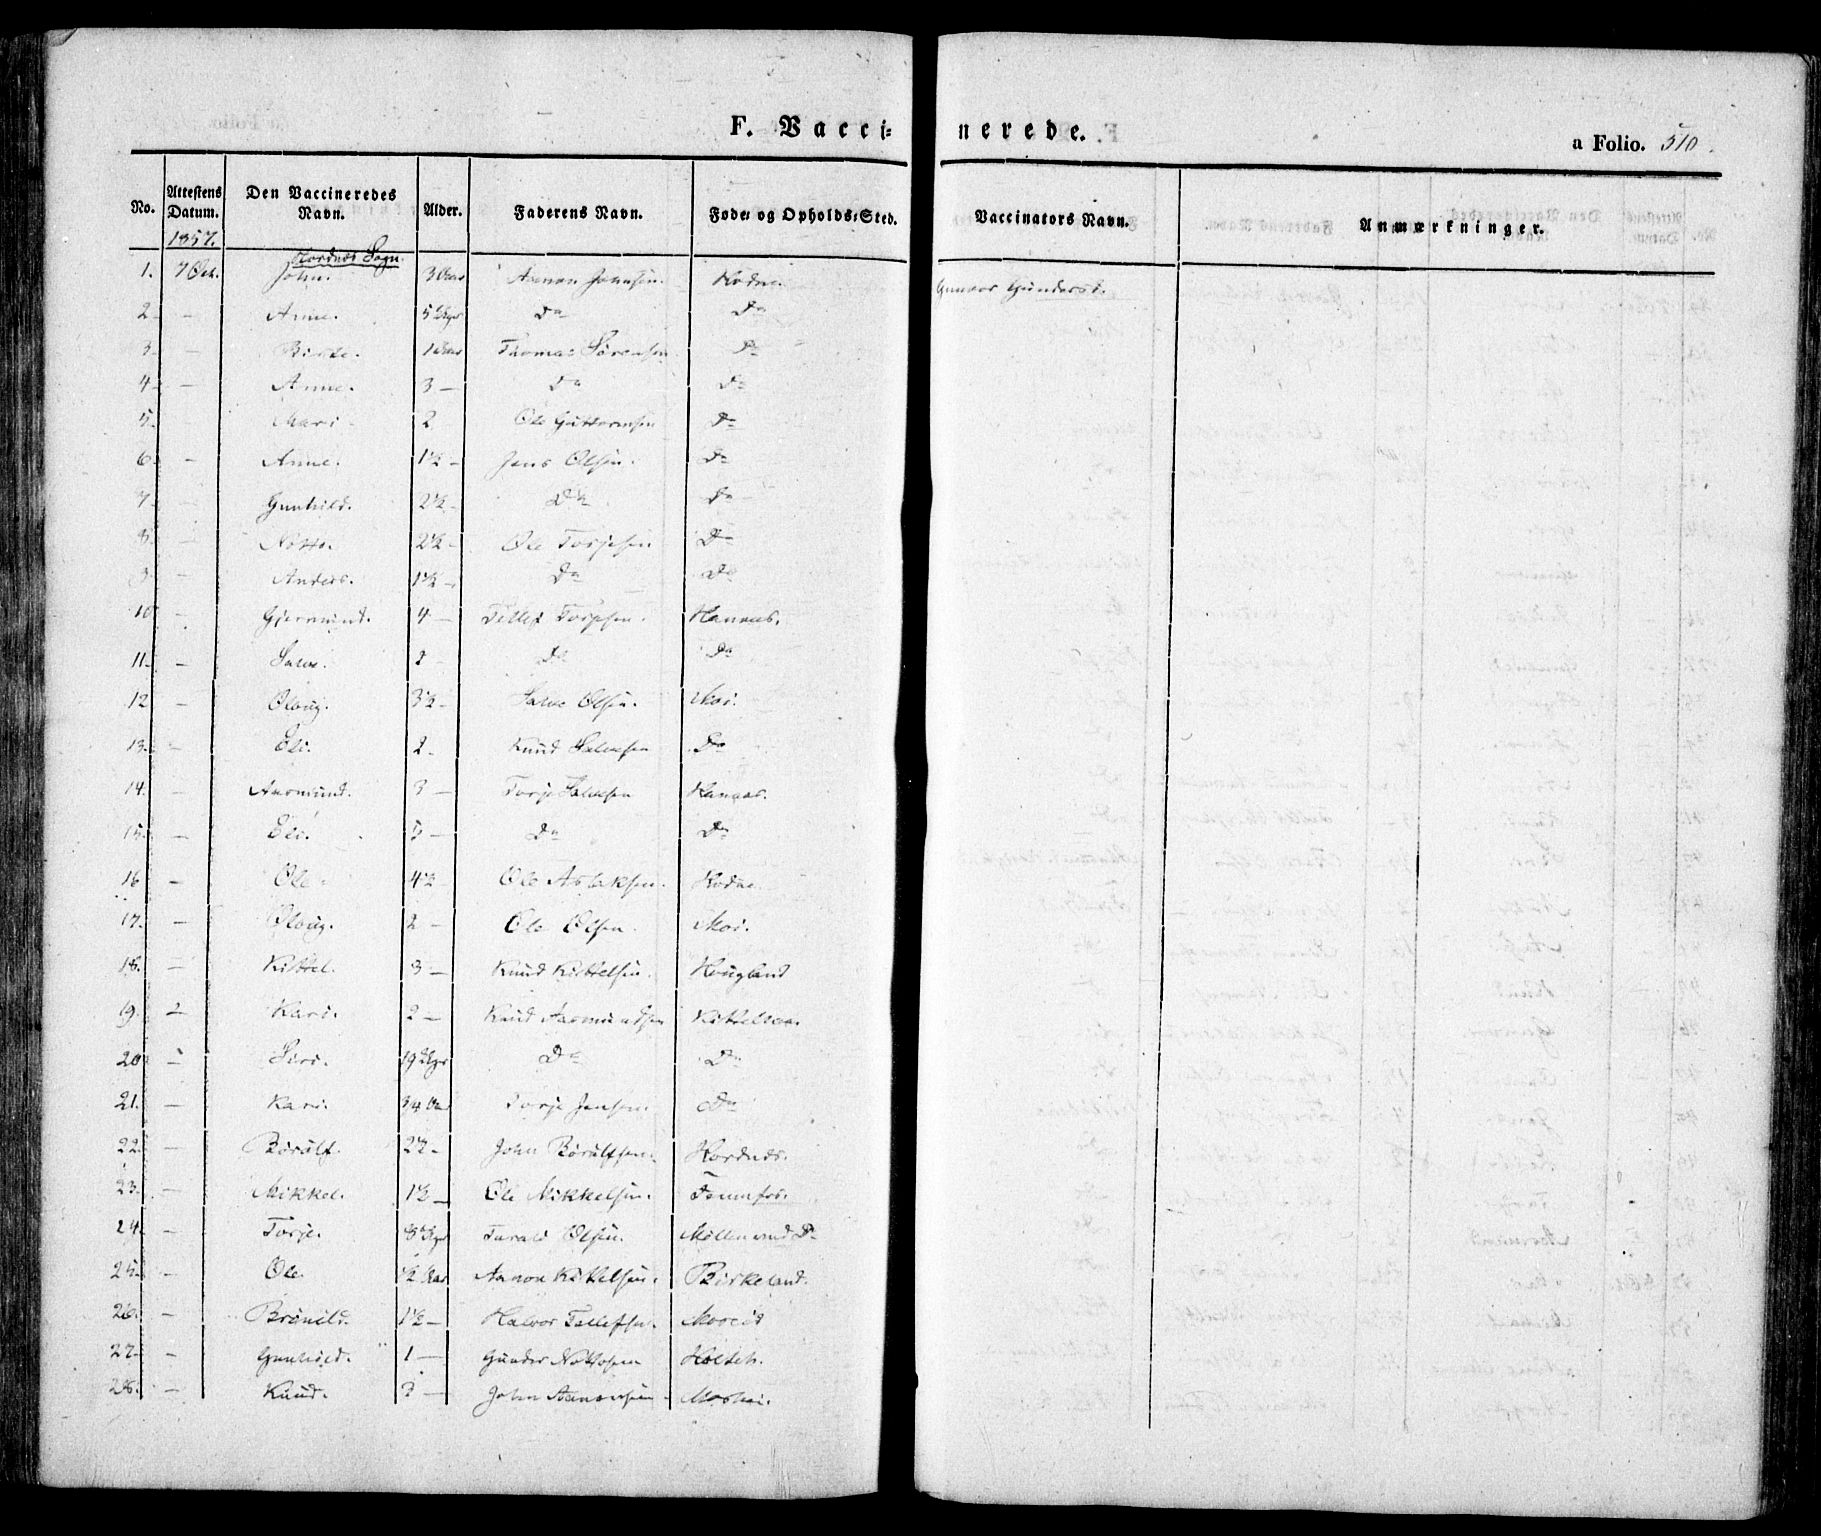 F. Vacci- nerede. a Folio. 510.
No. Attestens Datum. Den Vaccineredes Navn. Alder. Faderens Navn. Føde- og Opholds-Sted. Vaccinators Navn. Anmærkninger.
1857. Hordnes Sogn.
1. 7 Oct. John. 3 Aar Aanon Hodne. Gunvor Gundersd.
2 - Anne. 5 Uger Do Do
3. - Birte. 1 Aar Thomas Sørensen Do
4 - Anne. 3 - Do Do
5. Mari 2 Ole Guttormsen Do
6. - Anne. 1½ - Jens Olsen. Do
7. - Gunhild. 2½ - Do Do
8. - Notto. 2½ - Ole Torjesen Do
9. - Anders. 1½ - Do Do
10 - Gjermund. 4 - Tellef Torjesen. Hannaas.
11. - Salve. 2 - Do Do
12 - Oloug. 3½ - Salve Olsen. Moi.
13. - Eli. 2 - Knud Salvesen Do
14. - Aasmund. 3 - Torje Salvesen Hannaas.
15. - Eli. 5 - Do Do
16 - Ole 4½ - Ole Aslaksen. Hodne.
17. - Oloug. 2 - Ole Olsen. Moi.
18. - Kittel. 3 - Knud Kittelsen. Hougland
19. - Kari. 2 - Knud Aasmundsen
20 - Siri. 19 Uger Do Do
21. - Kari. Torje Jensen. Do
22. - Børulf. 2½ - John Børulfsen. Hordnes.
23. - Mikkel. 1½ - Ole Mikkelsen.
24. - Torje. 8 Uger Tarald Olsen.
25. - Ole. ½ Aar Aanon Kittelsen. Birkeland.
26. - Brønild. 1½ - Halvor Tellefsen.
27. - Gunhild. 1 - Gunder Nottosen
28. - Knud. 3 - John Aanonsen